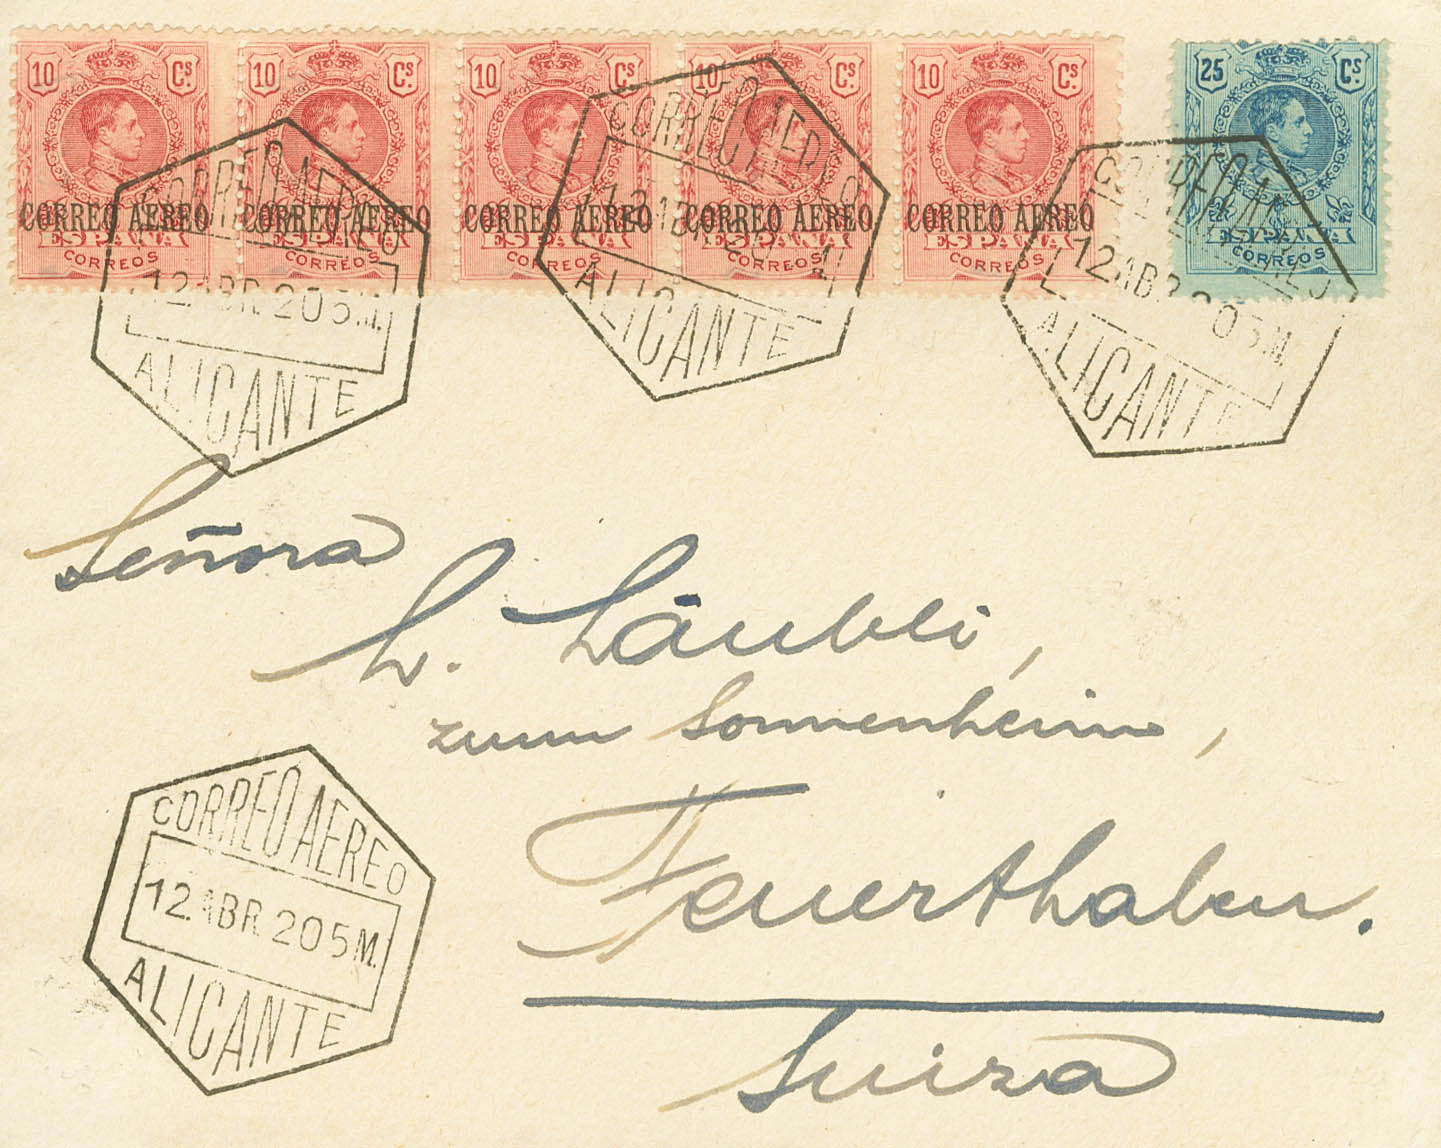 10 Cs. 10 Cs. 10 Cs. 10 Cs. 10 Cs. 25 Cs.
CORREO AEREO CORREO AEREO CORREO AEREO CORREO AEREO CORREO AEREO
ESPAÑA ESPAÑA ESPAÑA ESPAÑA ESPAÑA ESPAÑA
CORREOS CORREOS CORREOS CORREOS CORREOS CORREOS
CORREO AEREO
12 ABR. 20 5M.
ALICANTE
CORREO AEREO
12 AB
ALICANTE
CORREO AE
12 ABR 20 5M.
ALICANTE
Señora
L. Läubli,
zum Sonnenheim,
Feuerthalen.
Suiza
CORREO AEREO
12. ABR. 20 5M.
ALICANTE